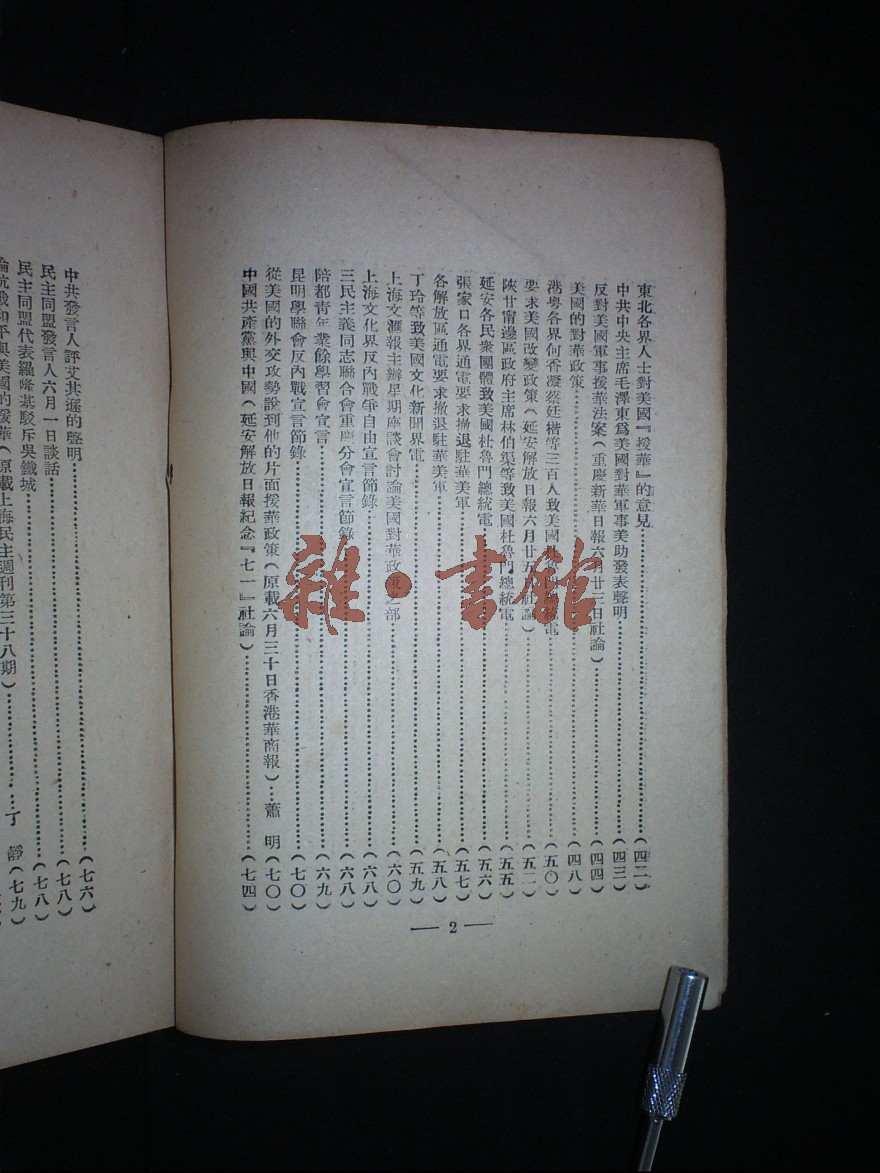 東北各界人士對美國『援華』的意見………(四二)
中共中央主席毛澤東爲美國對華軍事美助發表聲明………(四三)
反對美國軍事援華法案(重慶新華日報六月廿三日社論)………(四四)
美國的對華政策………(四八)
港粤各界何香凝蔡廷楷等三百人致美國杜魯門總統電………(五〇)
要求美國改變政策(延安解放日報六月廿五日社論)………(五二)
陝甘甯邊區政府主席林伯渠等致美國杜魯門總統電………(五五)
延安各民衆團體致美國杜魯門總統電………(五六)
張家口各界通電要求撤退駐華美軍………(五七)
各解放區通電要求撤退駐華美軍………(五八)
丁玲等致美國文化新聞界電………(五九)
上海文滙報主辦星期座談會討論美國對華政策之部………(六〇)
上海文化界反內戰爭自由宣言節錄………(六八)
三民主義同志聯合會重慶分會宣言節錄………(六八)
陪都青年業餘學習會宣言………(六九)
昆明學聯會反內戰宣言節錄………(七〇)
從美國的外交攻勢說到他的片面援華政策(原載六月三十日香港華商報)…蕭 明(七〇)
中國共產黨與中國(延安解放日報紀念『七一』社論)………(七四)
— 2 —
中共發言人評艾其遜的聲明………(七六)
民主同盟發言人六月一日談話………(七八)
民主同盟代表羅隆基駁斥吳鐵城………(七八)
論抗戰和平與美國的援華(原載上海民主週刊第三十八期)………丁 靜(七九)
雜·書館